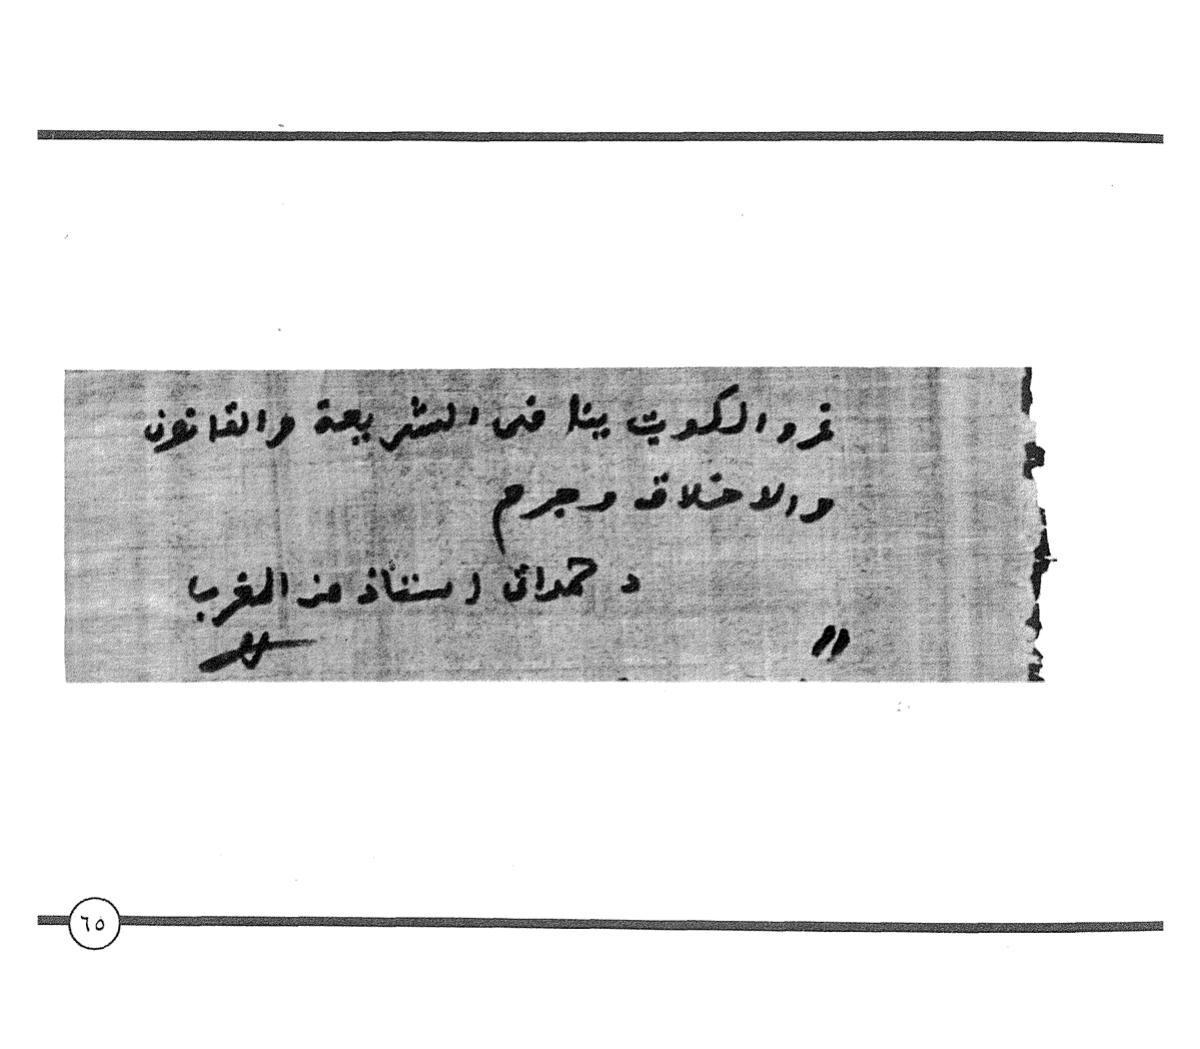 غزو الكويت ينافى الشريعة والقانون
والاخلاق وجرم
د حمداتى استاذ من المغرب
٦٥